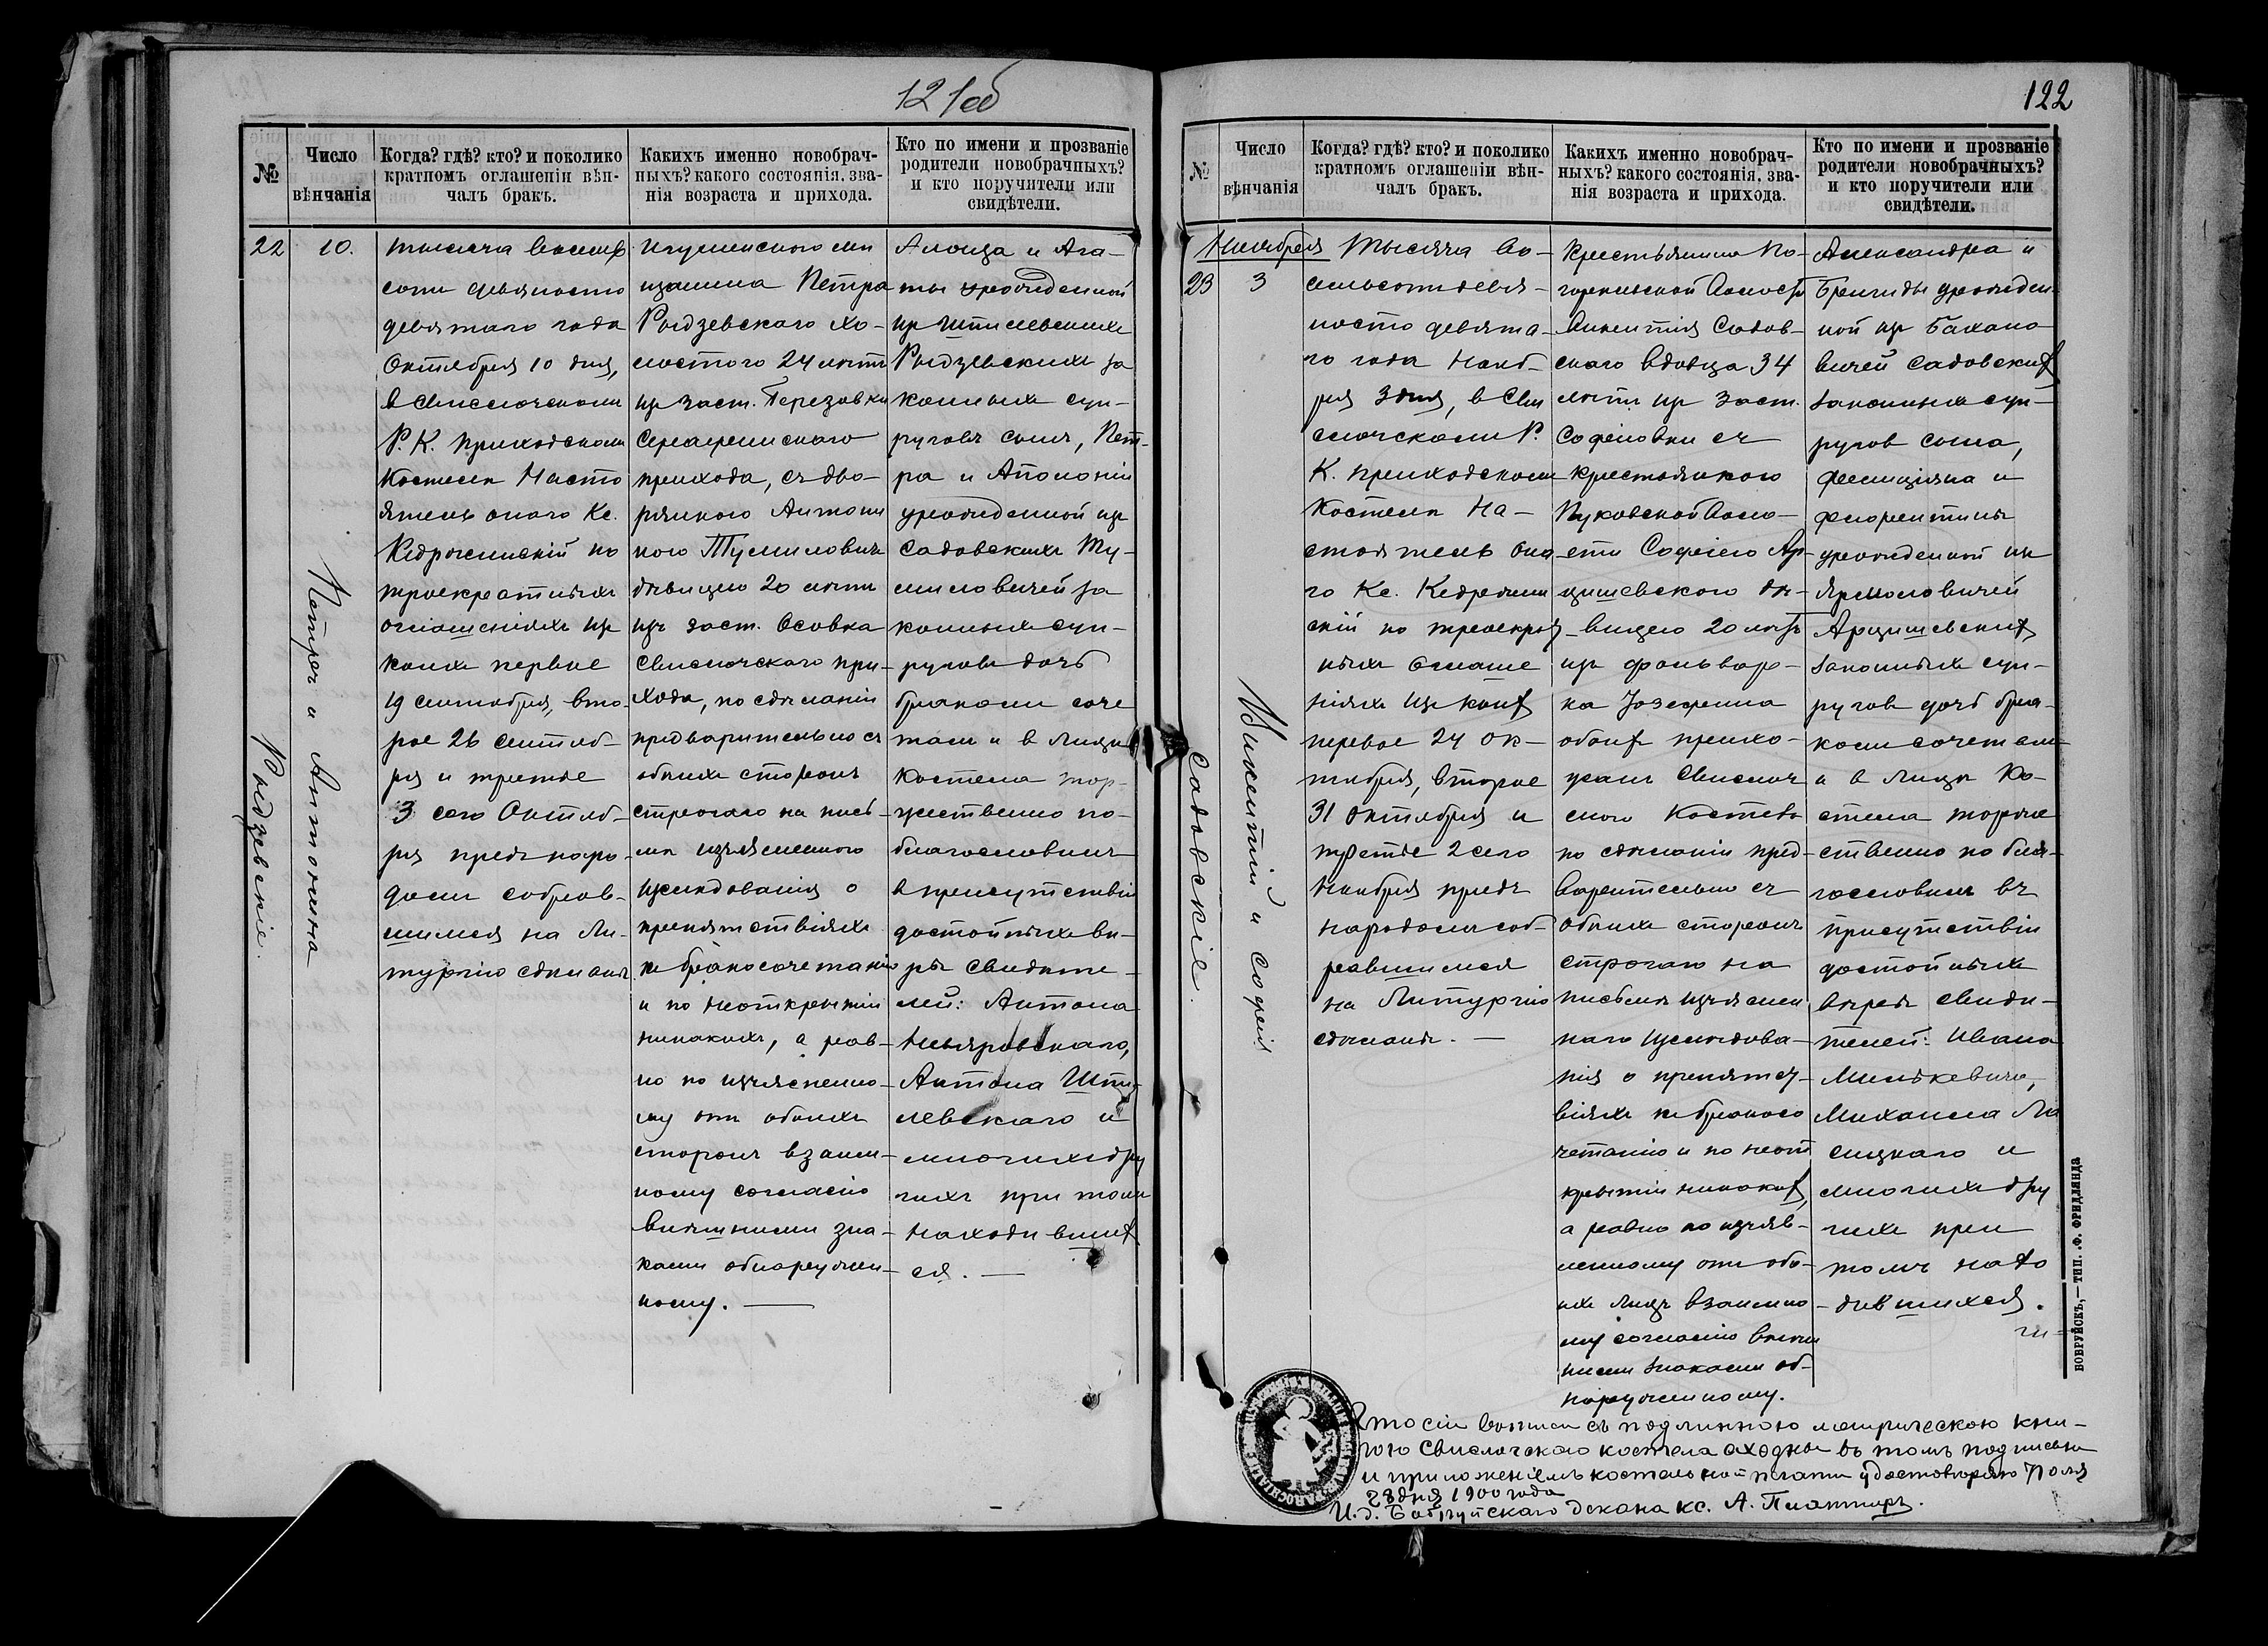 121об
№
Число
вѣнчанія
Когда? гдѣ? кто? и поколико
кратномъ оглашеніи вѣн-
чалъ бракъ.
Какихъ именно новобрач-
ныхъ? какого состоянія, зва-
нія возраста и прихода.
Кто по имени и прозваніе
родители новобрачныхъ?
и кто поручители или
свидѣтели.
22
10.
Петръ и Антонина
Рыдзевскіе.
тысяча восемь
сотъ девяносто
девятаго года
Октября 10 дня,
в Свислочскомъ
Р. К. приходскомъ
Костелѣ Насто
ятель онаго Кс.
по
троекратныхъ
оглашеніяхъ из
коихъ первое
19 сентября, вто-
рое 26 сентяб-
ря и третье
3 сего Октяб-
ря предъ наро-
домъ собрав-
шимся на Ли-
тургію сдѣланы
Игуменскаго мѣ
щанина Петра
Рыдзевскаго хо-
лостого 24 лѣтъ
из заст. Березовки
прихода, съ дво-
рянкою Антони
ною Тумиловичъ
дѣвицею 20 лѣтъ
изъ заст. Осовка
Свислочскаго при-
хода, по сдѣланіи
предварительно съ
обѣихъ сторонъ
строгаго на пись-
мѣ изъясненного
изслѣдованія о
препятствіяхъ
къ бракосочетанію
и по неоткрытіи
никакихъ, а рав-
но по изъясненно-
му отъ обѣихъ
сторонъ взаим-
ному согласію
внѣшними зна-
ками обнаружен-
ному. —
Алоиза и Ага-
ты урожденной
из Шпилевскихъ
Рыдзевскихъ за
конныхъ суп-
руговъ сына, Пет-
ра и Аполоніи
урожденной из
Садовскихъ Ту-
миловичей за
конныхъ суп-
руговъ дочь
бракомъ соче
талъ и в лицѣ
костела тор-
жественно по-
благословилъ
в присутствіи
достойныхъ вѣ-
ры свидѣте-
лей: Антона
Невяровскаго,
Антона Шпи-
левскаго и
многихъ дру
гихъ при томъ
находивших
ся. —
122
№
Число
вѣнчанія
Когда? гдѣ? кто? и поколико
кратномъ оглашеніи вѣн-
чалъ бракъ.
Какихъ именно новобрач-
ныхъ? какого состоянія, зва-
нія возраста и прихода.
Кто по имени и прозваніе
родители новобрачныхъ?
и кто поручители или
свидѣтели.
Ноября
23
3
Викентій и Софія
Садовскіе.
Тысяча во-
семьсотъ девя-
носто девята-
го года Нояб-
ря 3 дня, в Сви
слочскомъ Р.
К. приходскомъ
Костелѣ На-
стоятель она
го Кс.
по троекрат
ныхъ оглаше
ніяхъ из коих
первое 24 ок-
тября, второе
31 октября и
третье 2 сего
Ноября предъ
народомъ соб-
равшимся
на Литургію
сдѣланы. —
Крестьянина По-
горѣльской волости
Викентія Садов-
скаго вдовца 34
лѣтъ из заст.
Софіевки съ
крестьянкою
воло-
сти Софіею Ар-
цишевскою дѣ-
вицею 20 лѣтъ
из фольвар-
ка Юзефина
обоих прихо-
жанъ Свислоч
ского Костела
по сдѣланіи пред-
варительно съ
обѣихъ сторонъ
строгаго на
письмѣ изъяснен
наго изслѣдова-
нія о препятст-
віяхъ к бракосо
четанію и по неот
крытіи никаких,
а равно по изъяв-
ленному отъ обо-
ихъ лицъ взаимно
му согласію внѣш
ними знаками об-
наруженному.
Александра и
Бригиды урожден-
ной из Бахано
вичей Садовских
законныхъ суп-
ругов сына,
Фелиціяна и
Флорентины
урожденной из
Ярмоловичей
Арцишевских
законныхъ суп-
ругов дочь бра-
комъ сочеталъ
и в лицѣ Ко-
стела торже
ственно побла-
гословилъ въ
присутствіи
достойныхъ
вѣры свидѣ-
телей: Ивана
Милькевича,
Михаила Ли
сицкаго и
многихъ дру
гихъ при
томъ нахо
дившихся.
Что сія выпись съ подлинною метрическою кни-
гою Свислочскаго костела сходна въ томъ подписью
и приложеніемъ костельной печати удостовѣряю
28 дня 1900 года
И. д. Бобруйскаго декана кс. А.
БОБРУЙСКЪ,—ТИП. Ф. ФРИДЛЯНДА